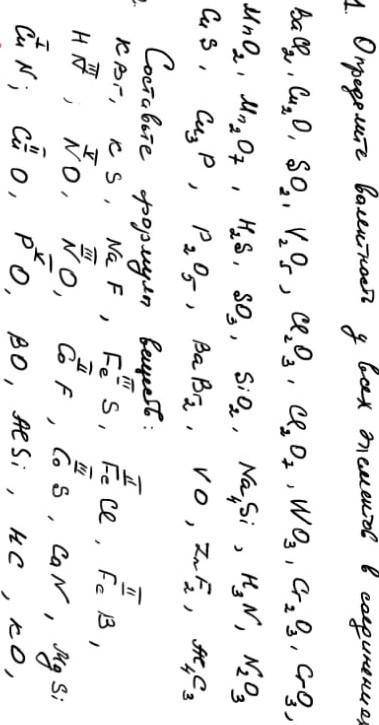 1. Определите валентность у всех элементов в соединениях
BaCl₂, Cu₂O, SO₂, V₂O₅, Cl₂O₃, Cl₂O₇, WO₃, Cr₂O₃, CrO₃,
MnO₂, Mn₂O₇, H₂S, SO₃, SiO₂, Na₄Si, H₃N, N₂O₃
CuS, Cu₃P, P₂O₅, BaBr₂, VO, ZnF₂, Al₄C₃
Составьте формулы веществ:
III II II
KBr, KS, NaF, FeS, FeCl, FeB,
III V III II III
HN, NO, NO, CoF, CoS, CaN, MgSi
I II V
CuN; CuO, PO, BO, AlSi, HC, KO,